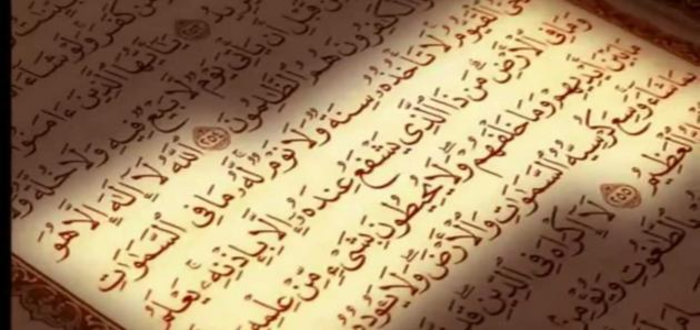 كَفَرَ وَلَوْ شَآءَ
يُرِيدُ ٢٥٣ يَٰٓأَيُّهَا ٱلَّذِينَ ءَامَنُوٓا۟
قَبْلِ أَن يَأْتِىَ يَوْمٌ لَّا بَيْعٌ فِيهِ وَلَا خُلَّةٌ
وَٱلْكَٰفِرُونَ هُمُ ٱلظَّٰلِمُونَ ٢٥٤ ٱللَّهُ لَآ إِلَٰهَ إِلَّا هُوَ
ٱلْقَيُّومُ لَا تَأْخُذُهُۥ سِنَةٌ وَلَا نَوْمٌ لَّهُۥ مَا فِى ٱلسَّمَٰوَٰتِ
وَمَا فِى ٱلْأَرْضِ مَن ذَا ٱلَّذِى يَشْفَعُ عِندَهُۥٓ إِلَّا بِإِذْنِهِۦ يَعْلَمُ
مَا بَيْنَ أَيْدِيهِمْ وَمَا خَلْفَهُمْ وَلَا يُحِيطُونَ بِشَىْءٍ مِّنْ عِلْمِهِۦٓ
شَآءَ وَسِعَ كُرْسِيُّهُ ٱلسَّمَٰوَٰتِ وَٱلْأَرْضَ وَلَا يَـُٔودُهُۥ
ٱلْعَظِيمُ ٢٥٥ لَآ إِكْرَاهَ فِى ٱلدِّينِ قَد
بِٱلطَّٰغُوتِ وَيُؤْمِنۢ